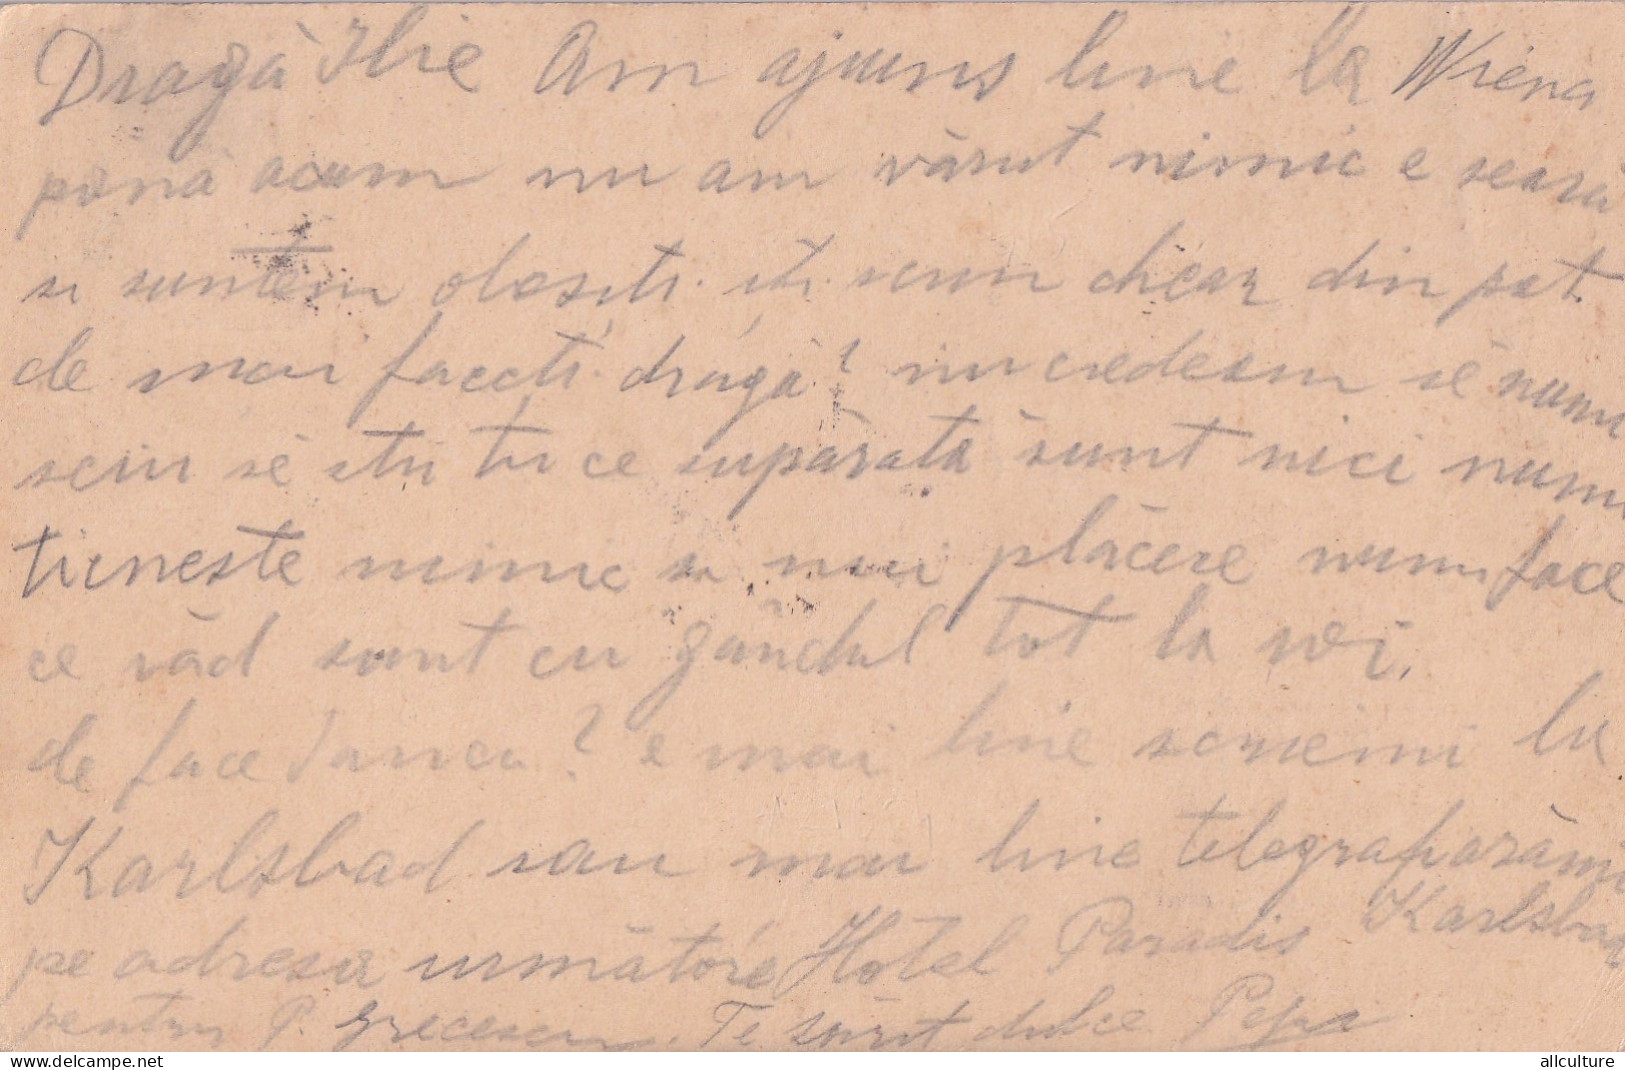 Dragă Ilie Am ajuns bine la Wiena
pănă acum nu am văzut nimic e seară
si suntem obosiți. iți scriu chear din pat
de mai faceți dragă? nu credeam să numi
scriu să stii tu ce supărată sunt nici numi
tieneste nimic si nici plăcere numi face
ce văd sunt cu găndul tot la voi.
de face Iancu? e mai bine scriemi la
Karlsbad sau mai bine telegrafazămi
pe adresa următóre Hotel Paradis Karlsbad
pentru P. Grecescu. Te sărut dulce Pepa
allculture